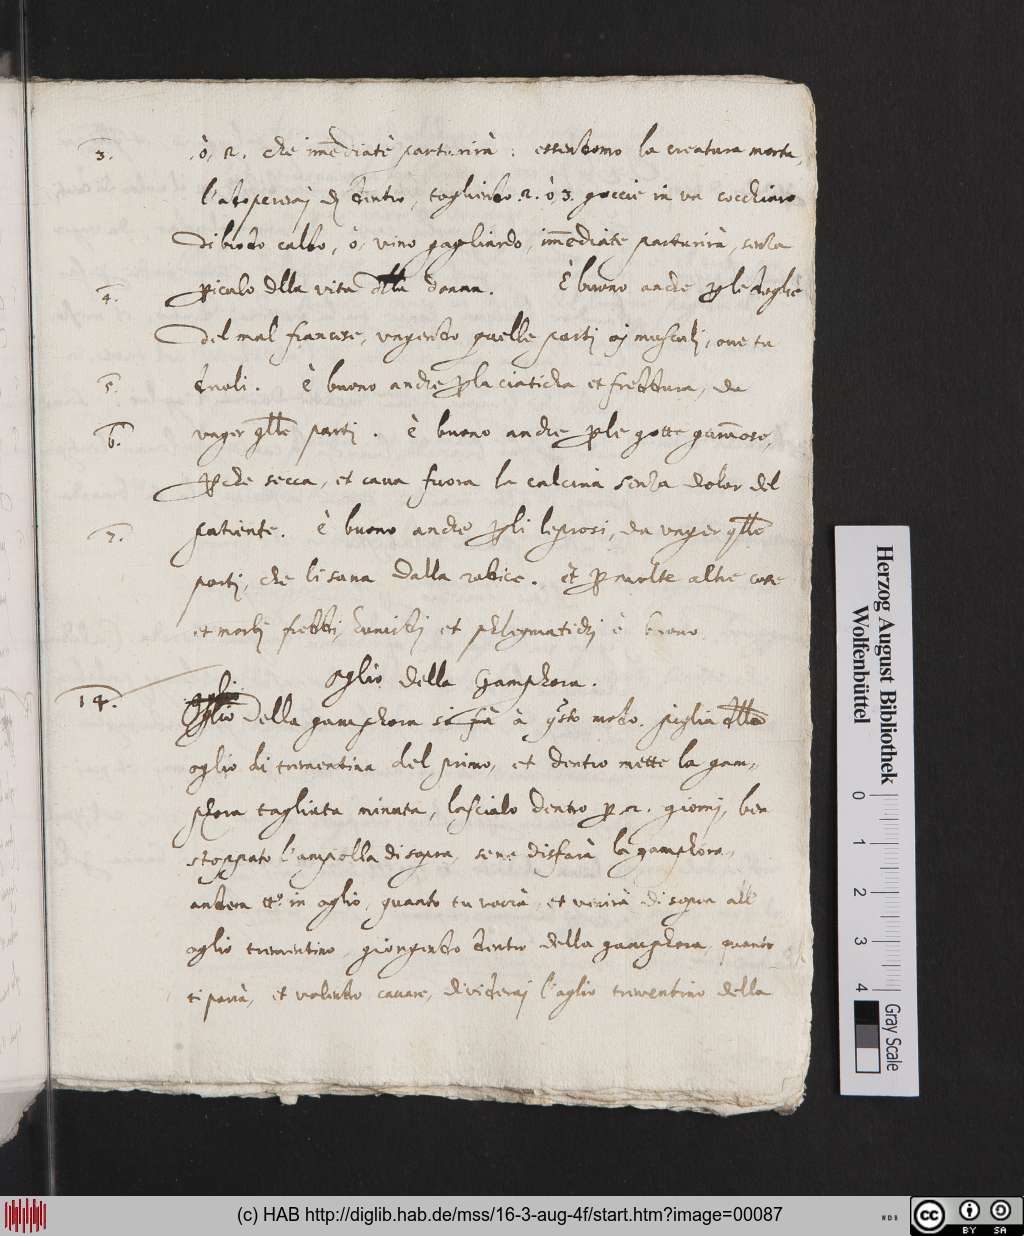 3. ò, 2. che im̄ediatè parturirà: essendomo la creatura morta,
l'adopererai di dentro, togliendo .2. ò, 3. goccie in un cocchiaro
di brodo caldo, ò, vino gagliardo, im̄ediate parturirà, senza
4. p̱icolo dlla vita dlla donna. È buono anche p̱ le doglie
del mal francese, ungendo quelle parti ò musculi, oue tu
5. duoli. È buono anche p̱ la ciaticha et freddura, da
6. unger q̄lle parti. È buono anche p̱ le gotte gum̄ose,
p̱che secca, et caua fuora la calcina senza dolor del
7. patiente. È buono anche p̱ li leprosi, da unger q̄lle
parti, che li sana dalla rabice. Et p̱ molte altre cose
et morbi freddi, humidi et phlegmatichi è buono
14. Oglio della Gamphora.
Oglio della gamphora si fà à q̄sto modo. piglia dllo
oglio di trementina del primo, et dentro mette la gam-
phora tagliata minuta, lascialo dentro p̱ 2. giorni, ben
stoppato l'ampolla di sopra, se ne disfarà la gamphora,
in oglio, quanto tu vorrà, et venirà di sopra all
oglio trementino, giongendo dentro della gamphora, quanto
ti parrà, et volendo cauare, dividerai l'oglio trementino della
Herzog August Bibliothek
Wolfenbüttel
0 1 2 3 4
Gray Scale
(c) HAB http://diglib.hab.de/mss/16-3-aug-4f/start.htm?image=00087
cc BY SA